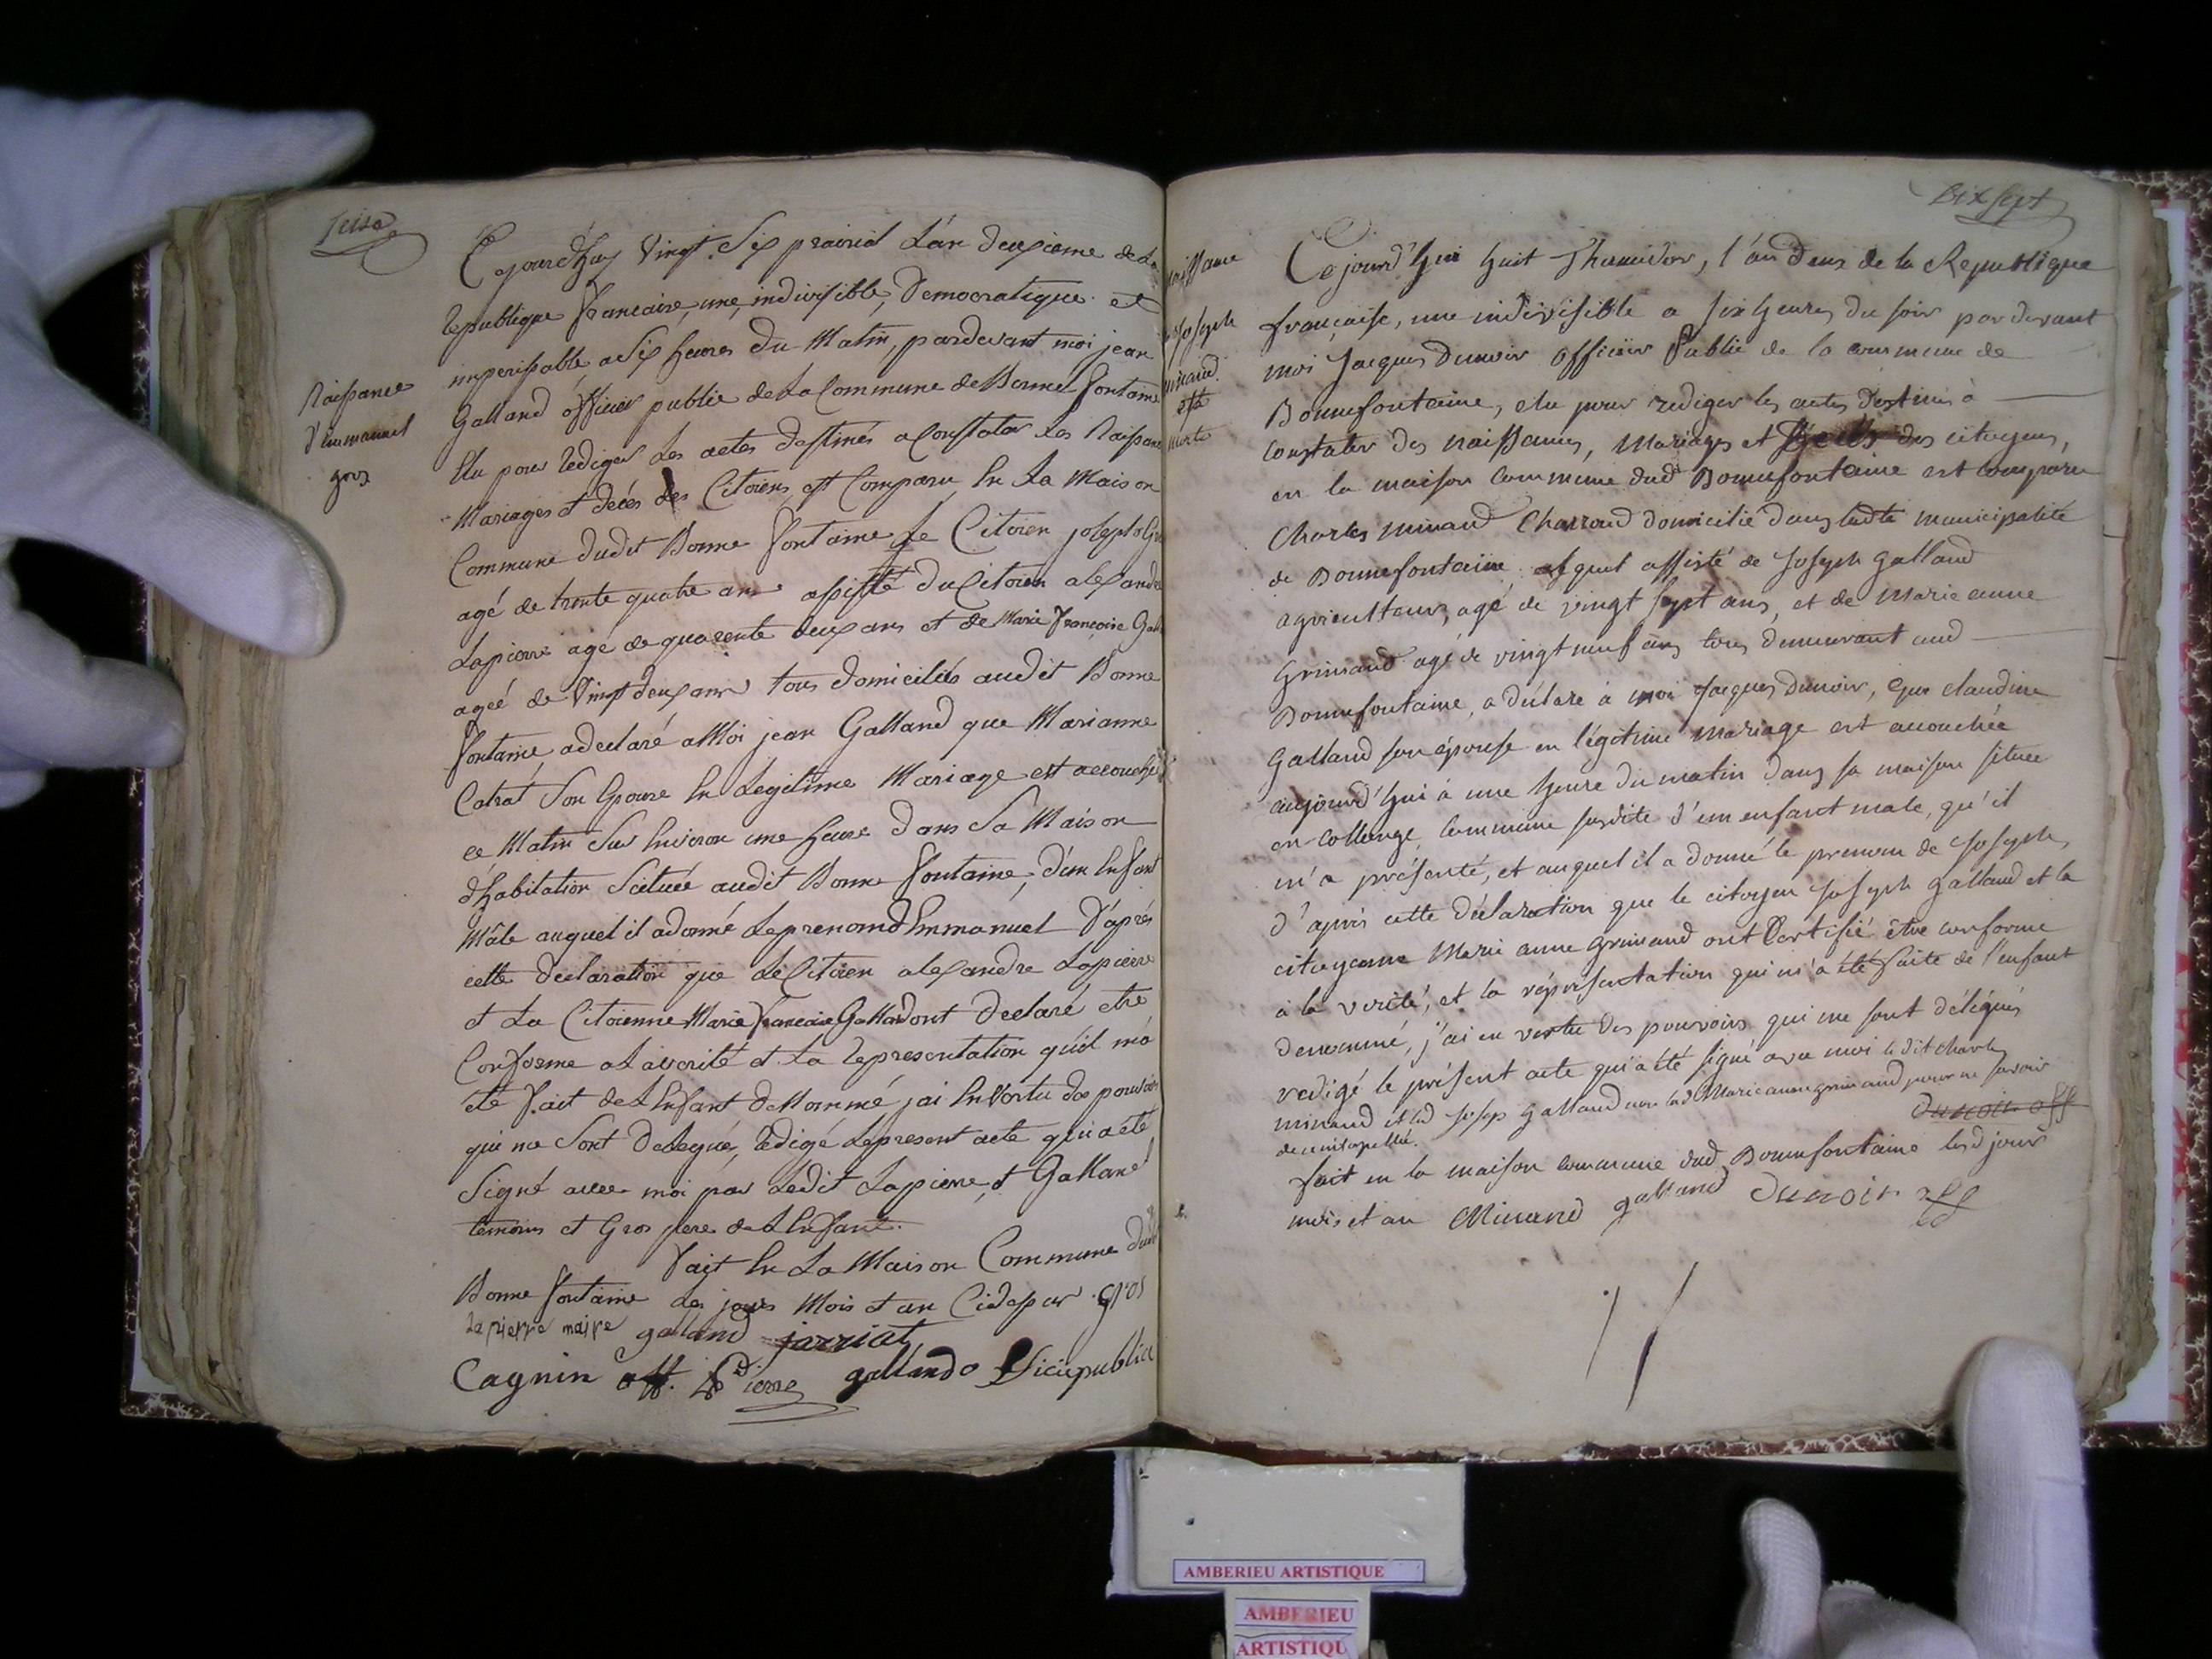 seise
Naissance
d'Emmanuel
gros
Cejourdhuy Vingt Six prairial L'an deuxieme de La
republique francaise, une, indivisible, Democratique et
imperissable a Six heures du Matin, pardevant moi jean
Galland officier public de La Commune de Bonne fontaine
Elu pour rediger Les actes destinés a Constater Les Naissance
Mariages et decés des Citoiens est Comparu En La Maison
Commune dudit Bonne fontaine Le Citoien joseph
agé de trente quatre ans assisté du Citoien alexandre
Lapierre agé de quarente deux ans et de Marie Francoise
ageé de Vingt deux ans tous domiciliés audit Bonne
fontaine, a declaré a Moi jean Galland que Marianne
Catrat Son Epouse En Legitime Mariage est accouchée
ce Matin Sur Environ une heure dans Sa Maison
d'habitation Scituée audit Bonne fontaine, d'un Enfant
Mâle auquel il a donné Le prenom d'Emmanuel D'après
cette declaration que Le Citoien alexandre Lapierre
et La Citoienne Marie Francoise Galland ont declaré etre
Conforme a La verité et La representation qu'il m'a
été fait de L'Enfant denommé j'ai En Vertu des pouvoirs
qui me Sont delegués, redigé Le present acte qui a été
Signé avec moi par Ledit Lapierre, et Galland
temoins et Gros pere de L'Enfant.
Fait En La Maison Commune dudit
Bonne fontaine Les jours Mois et an Cidessus gros
Lapierre maire galland jarriat
Cagnin off. galland o ficiepublic
Dix sept
naissance
Joseph
minaud
est
morte
Cejourd'hui huit Thermidor, l'an deux de la Republique
française, une indivisible a six heures du soir par devant
moi Jacques Dunoir officier Public de la commune de
Bonnefontaine, elu pour rediger les actes destinés à
constater des naissances, Mariages et décès des citoyens,
en la maison commune dud Bonnefontaine est comparu
Charles minaud Charroud domicilié dans ladte municipalité
de Bonnefontaine lequel assisté de Joseph Galland
agriculteur, agé de vingt sept ans, et de Marie anne
Grimaud agé de vingt neuf ans tous demeurant aud
Bonnefontaine, a déclaré à moi Jacques Dunoir, que claudine
Galland son épouse en légitime mariage est accouchée
aujourd'hui à une heure du matin dans sa maison située
en Collonge, commune susdite d'un enfant male, qu'il
m'a présenté, et auquel il a donné le prenom de Joseph,
d'après cette déclaration que le citoyen Joseph Galland et la
citoyenne Marie anne Grimaud ont Certifié être conforme
à la verité, et la réprésentation qui m'a été faite de l'enfant
denommé, j'ai en vertu des pouvoirs qui me sont délégués
redigé le présent acte qui a été signé avec moi ledit charles
minaud et led Joseps Galland non lad Marie anne grimaud pour ne savoir
Dunoir off
fait en la maison commune dud Bonnefontaine lesd jour
mois et an Minaud galland Dunoir off
AMBERIEU ARTISTIQUE
AMBERIEU
ARTISTIQU